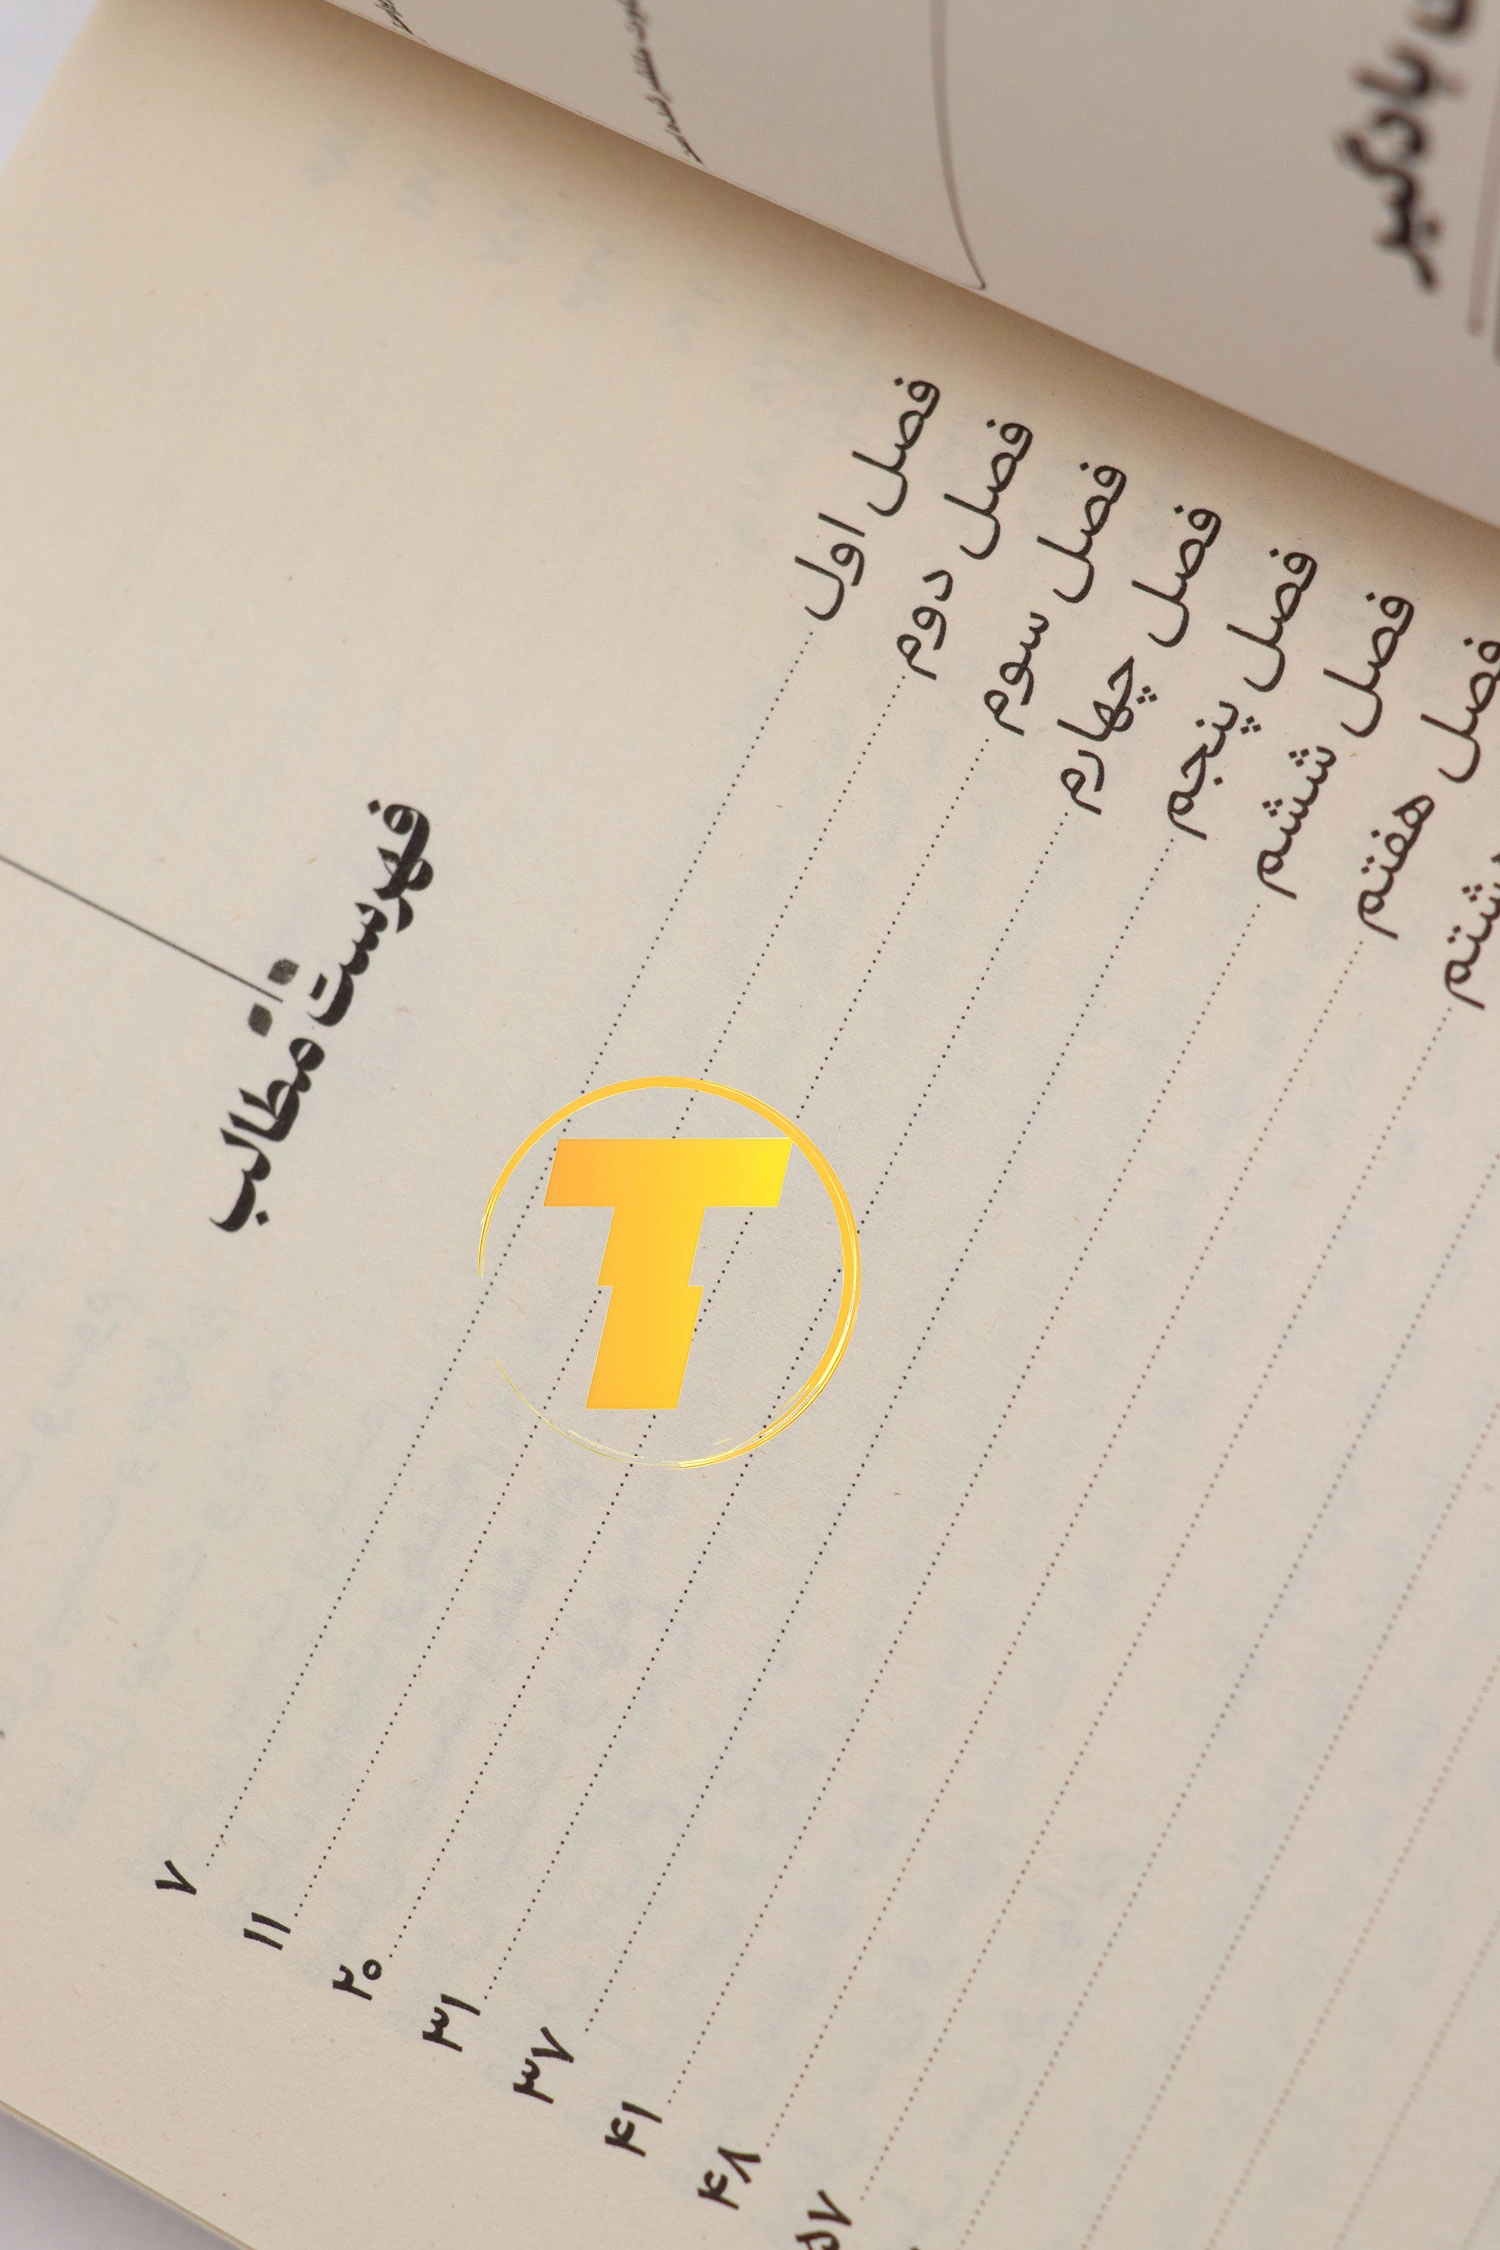 یادگیر
فهرست مطالب
فصل اول ........ ۷
فصل دوم ........ ۱۱
فصل سوم ........ ۲۰
فصل چهارم ........ ۳۱
فصل پنجم ........ ۳۷
فصل ششم ........ ۴۱
فصل هفتم ........ ۴۸
۵۷
T